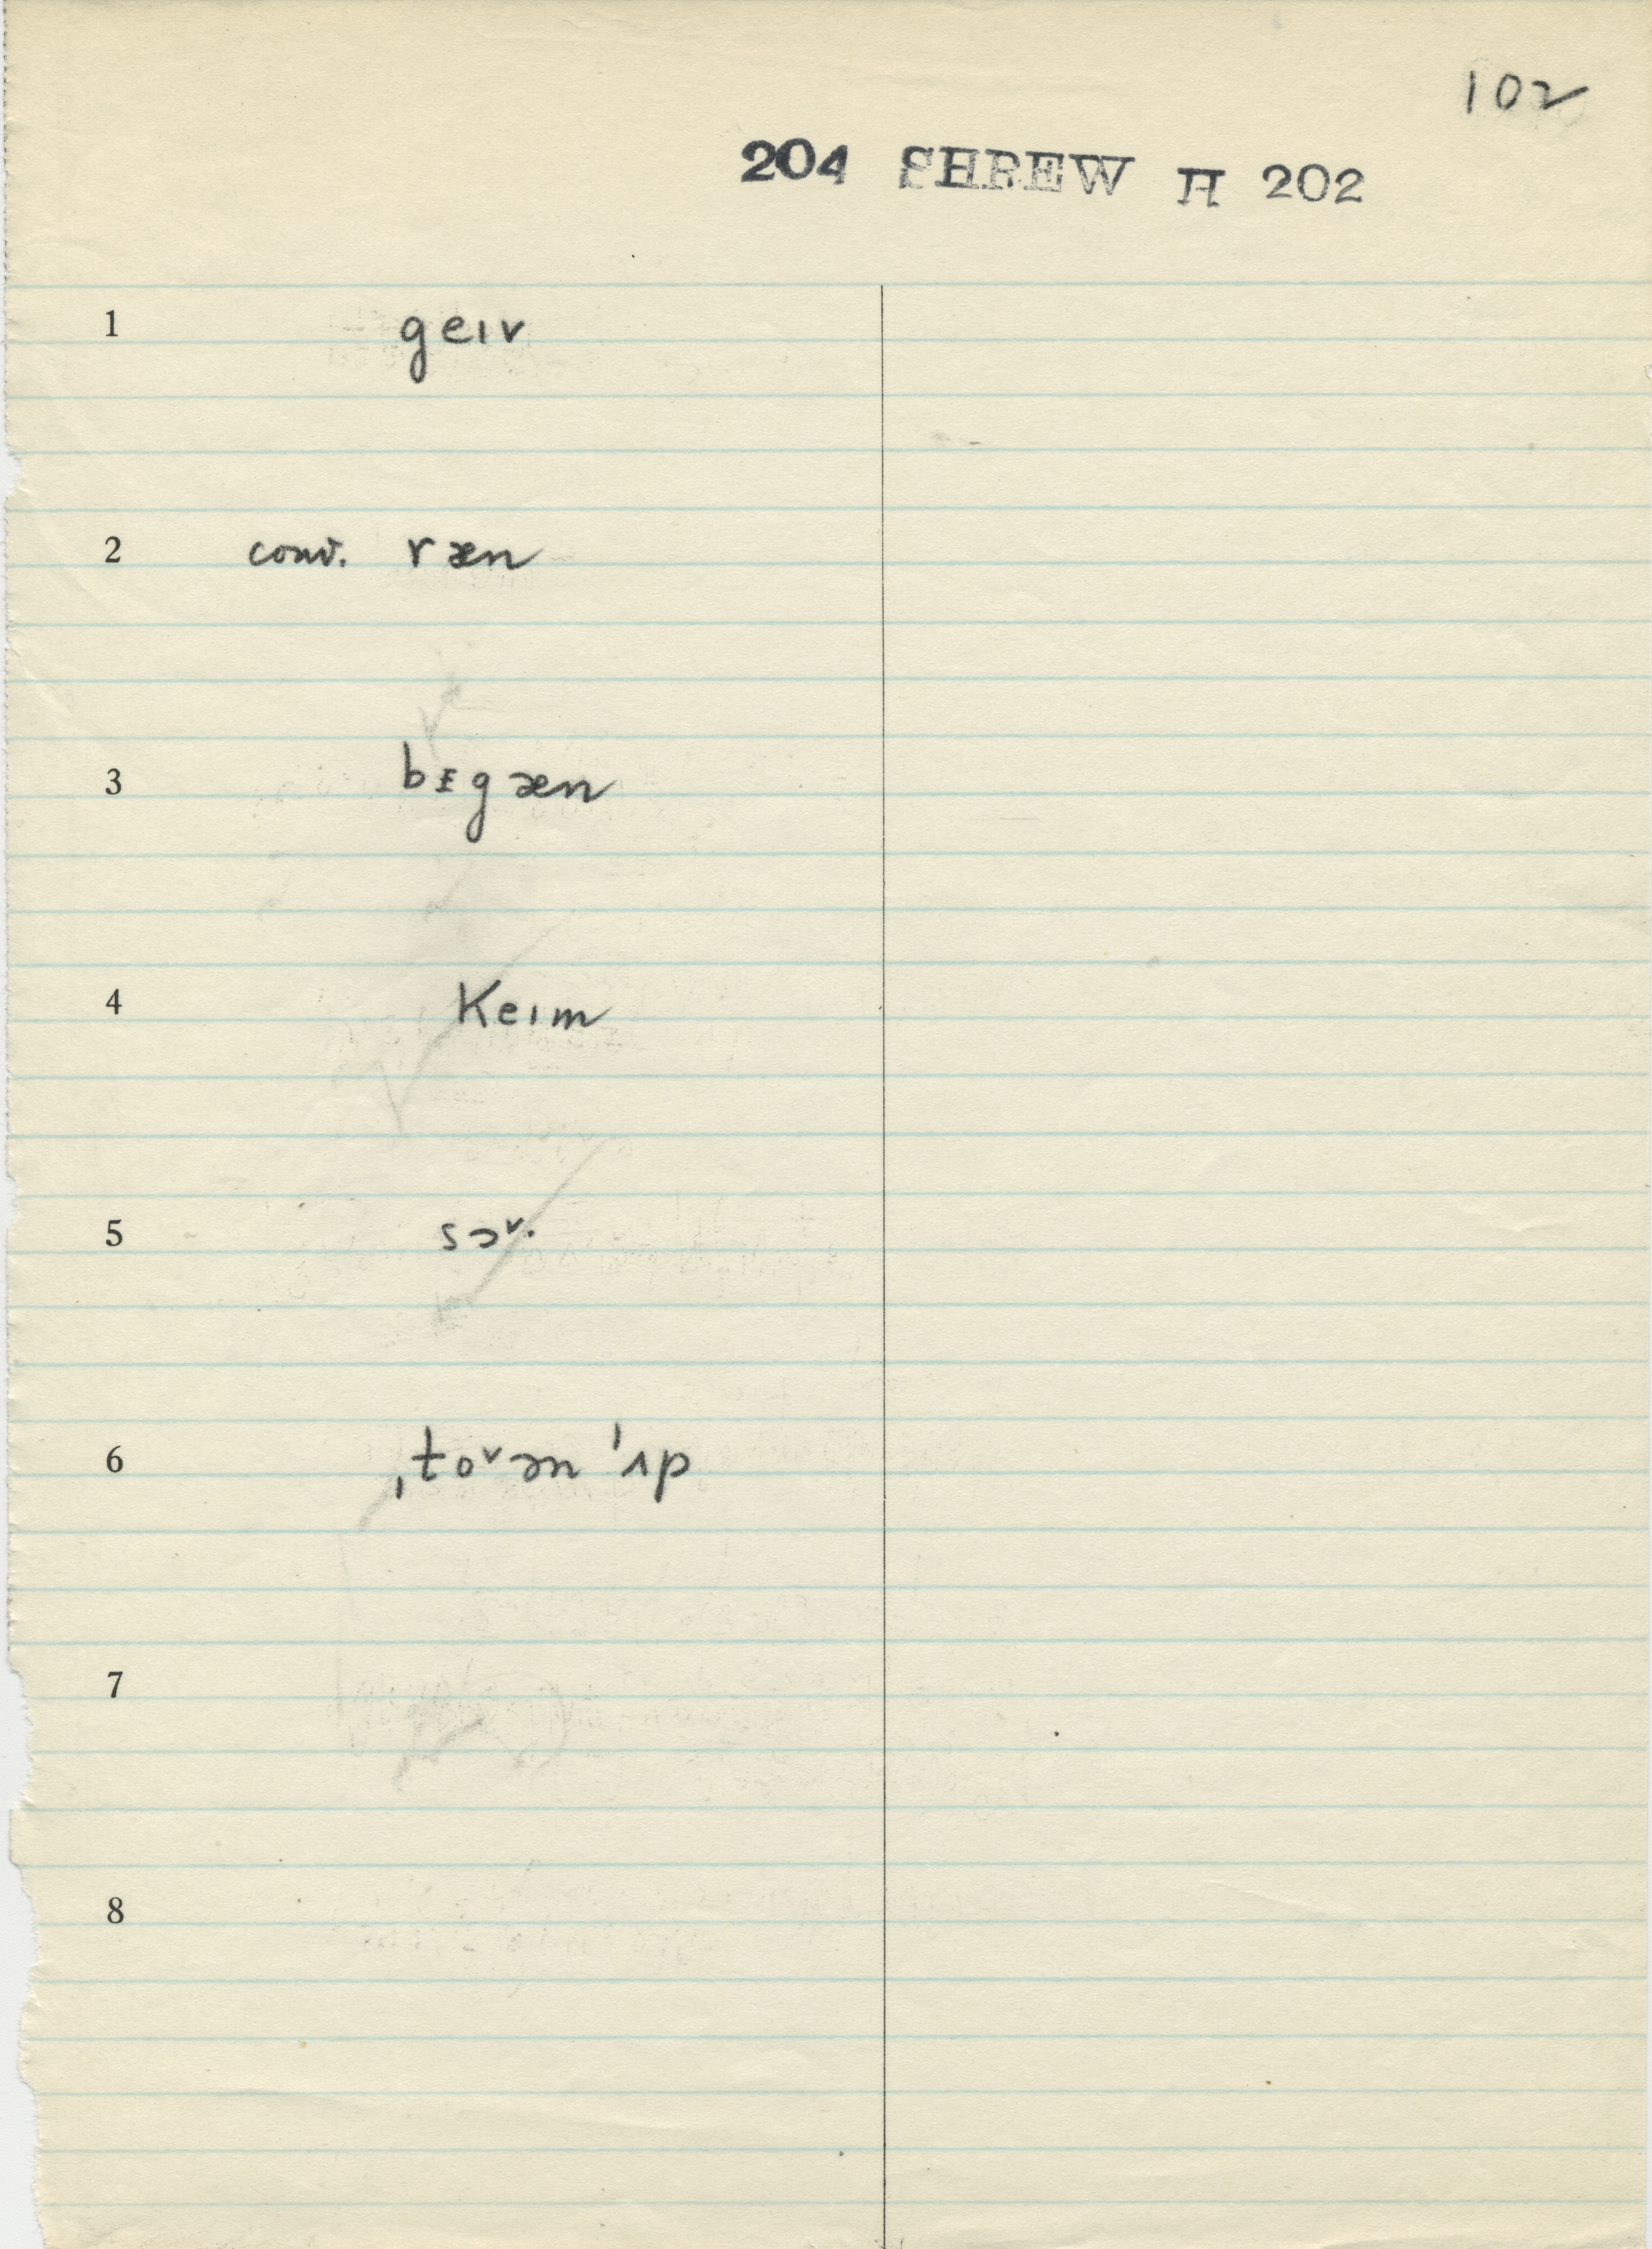 102
204 SHREW H 202
1 geɪv
2 conv. ræn
3 bᵻgæn
4 keɪm
5 sɔᵛ·
6 ˌtoᵛən ˈʌp
7
8